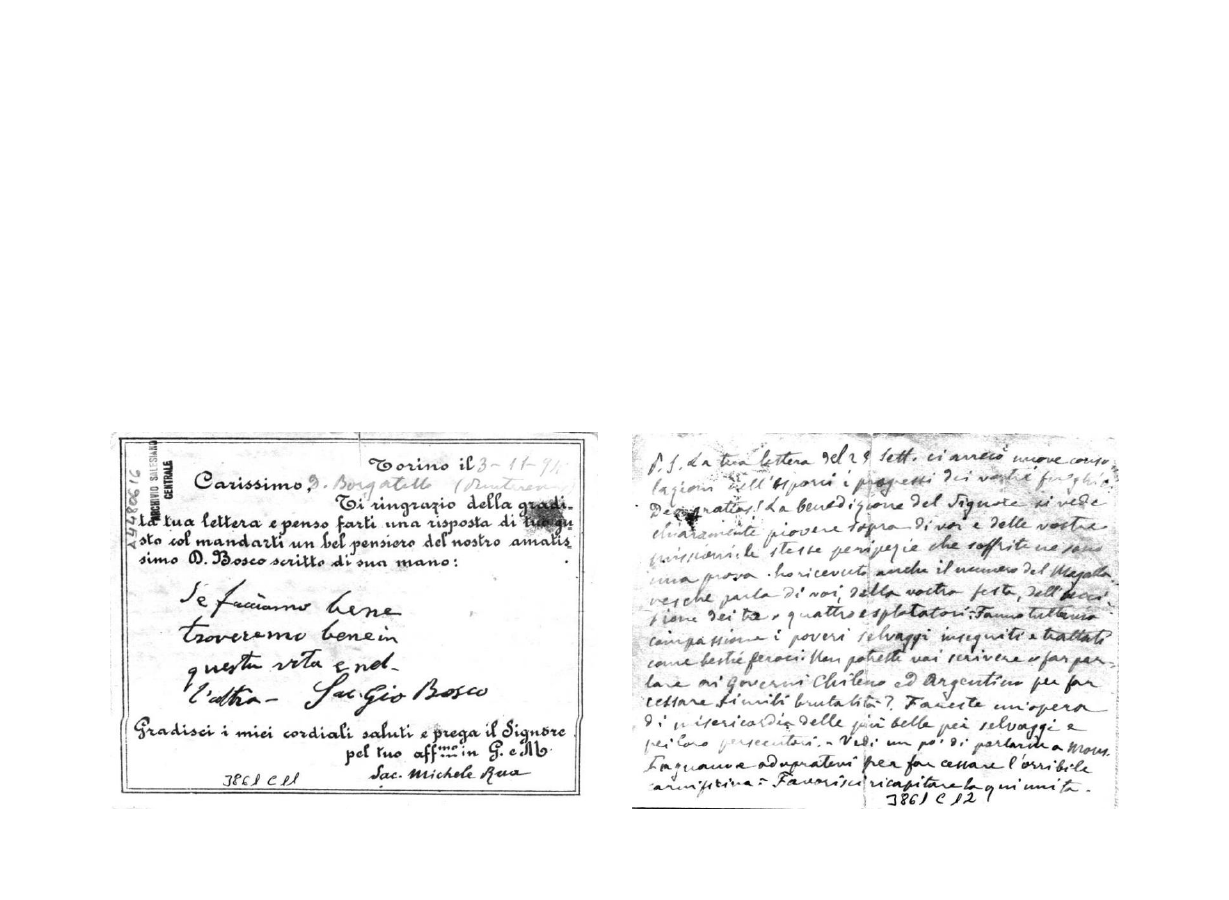 Torino il 3-11-9
Carissimo, D. Borgatello
Ti ringrazio della gradi-
ta tua lettera e penso farti una risposta di tuo gu
sto col mandarti un bel pensiero del nostro amatis
simo D. Bosco scritto di sua mano:
Se facciamo bene
troveremo bene in
questa vita e nel-
l'altra - Sac. Gio Bosco
Gradisci i miei cordiali saluti e prega il Signore
pel tuo aff.mo in G. e M.
Sac. Michele Rua
3861 C 11
A4480616
ARCHIVIO SALESIANO
CENTRALE
P. S. La tua lettera del 29 Sett. ci arrecò nuove conso-
lazioni nell'esporci i progressi dei vostri
Deo gratias! La benedizione del Signore si vede
chiaramente piovere sopra di voi e delle vostre
missioni: le stesse peripezie che soffrite ne sono
una prova. ho ricevuto anche il numero del Magalla
nes che parla di voi, della vostra festa, dell'ucci
sione dei tre o quattro esplotatori. Fanno
compassione i poveri selvaggi inseguiti e trattati
come bestie feroci. Non potreste voi scrivere o far par-
lare ai Governi Chileno ed Argentino per far
cessare simili brutalità? Fareste un'opera
di misericordia delle più belle pei selvaggi e
pei loro persecutori. - Vedi un po' di parlarne a Mons.
Fagnano e adopratevi per far cessare l'orribile
carnificina - Favorisci ricapitare la qui unita.
3861 C 12